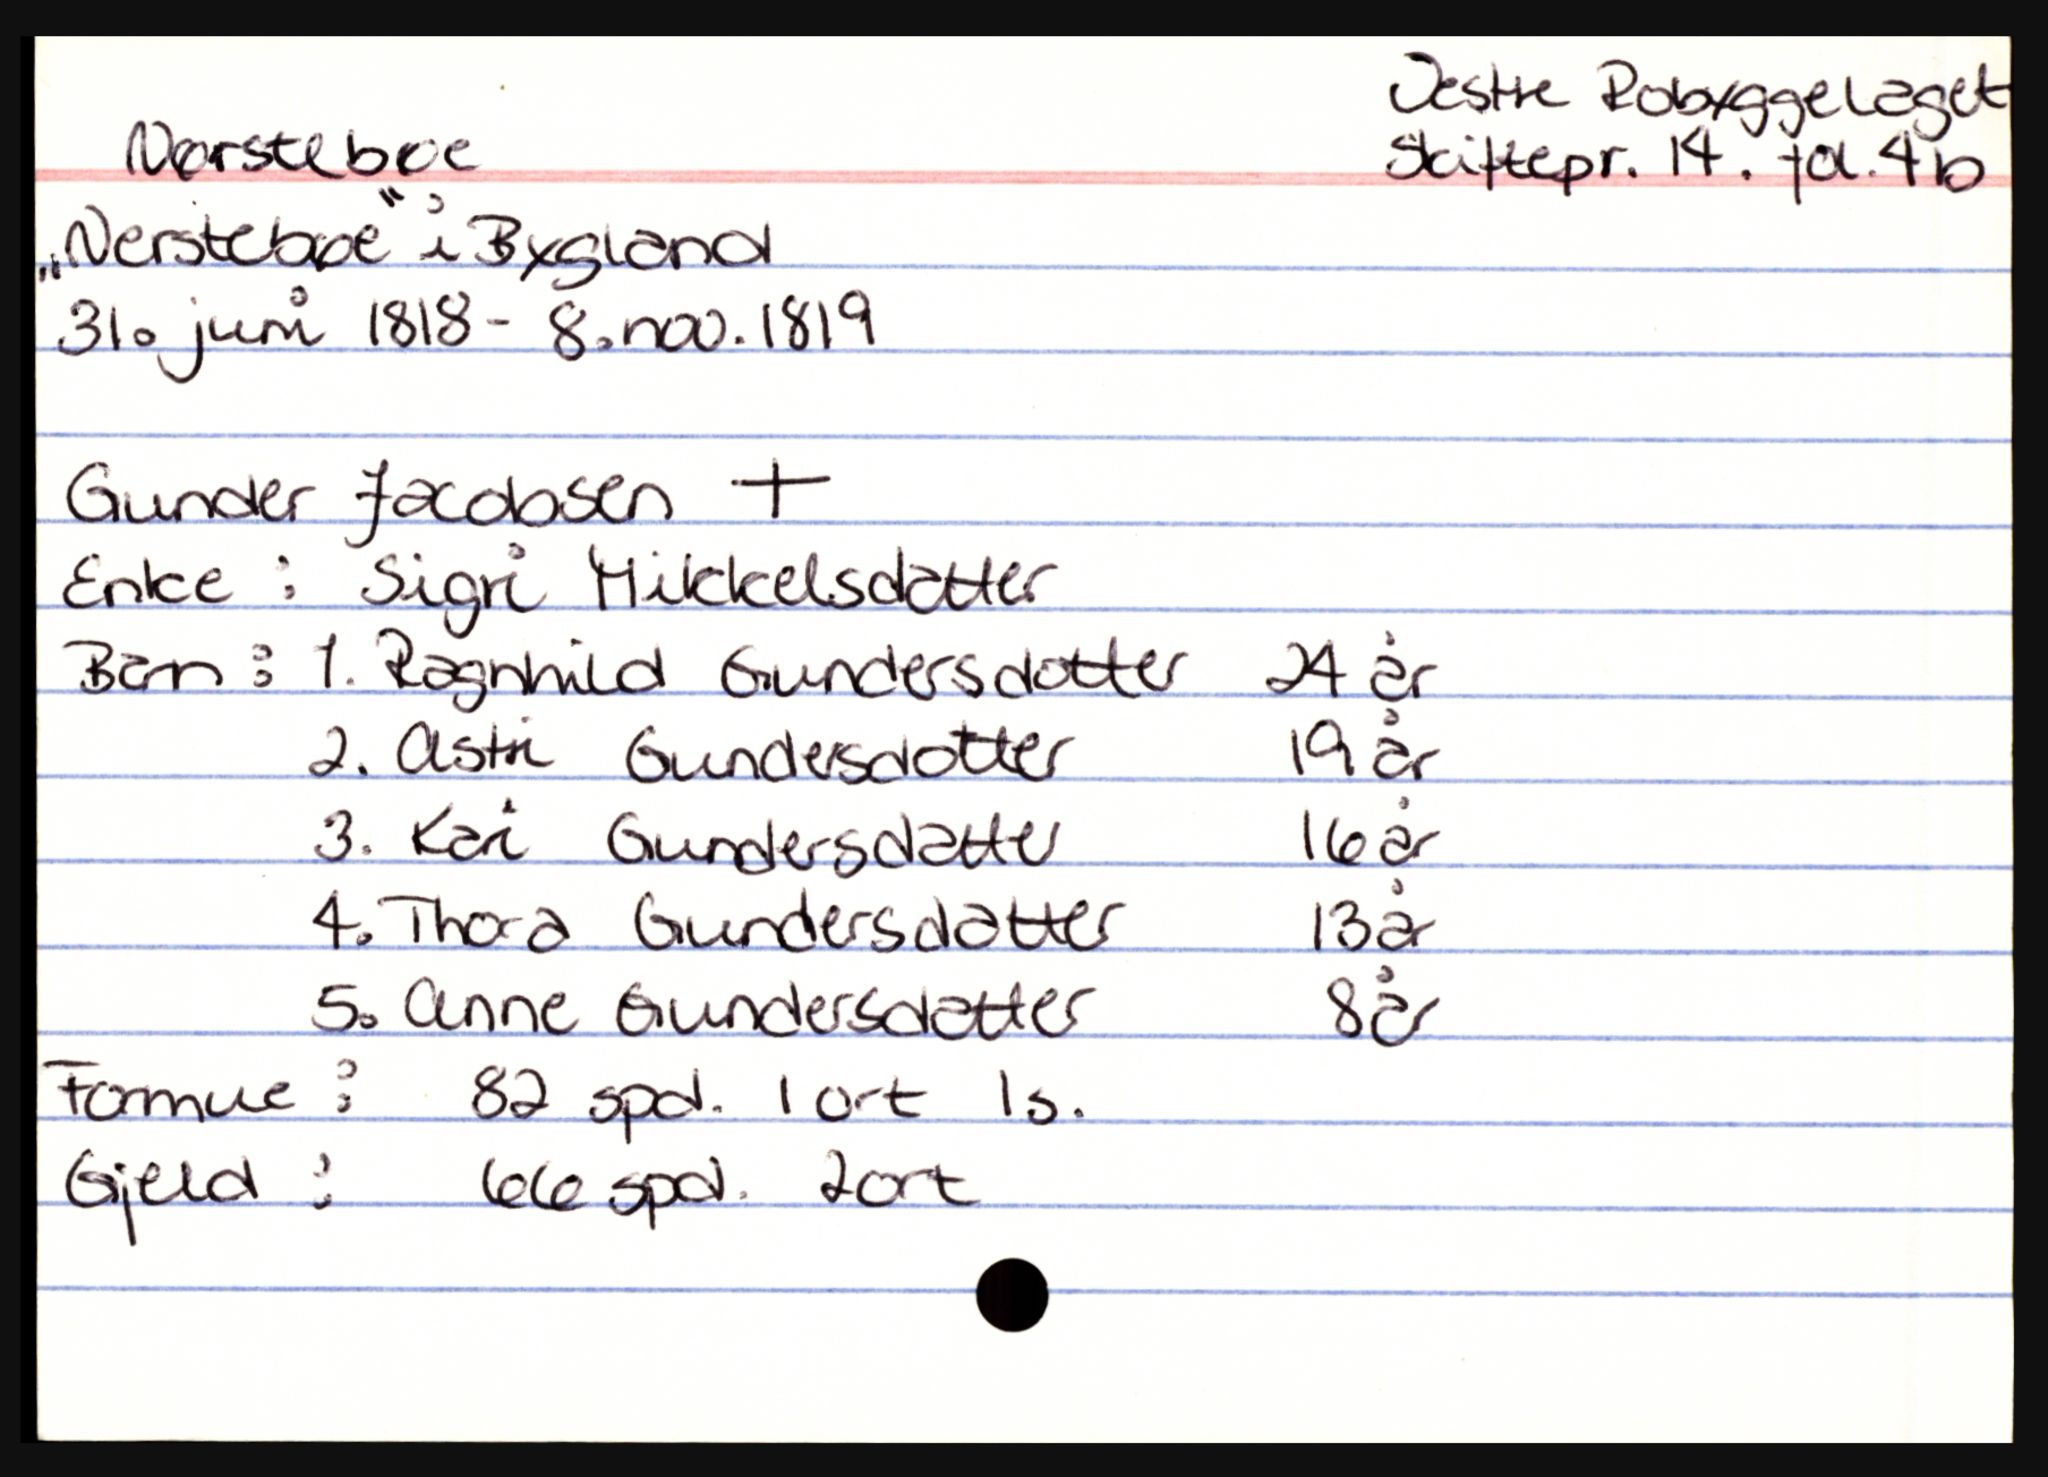 Vestre Robyggelaget
Nørsteboe
Skiftepr. 14. fol. 4b
„Nersteboe" i Bygland
31. juni 1818 - 8. nov. 1819
Gunder Jacobsen +
Enke : Sigri Mikkelsdatter
Barn : 1. Ragnhild Gundersdotter 24 år
2. Astri Gundersdotter 19 år
3. Kari Gundersdatter 16 år
4. Thora Gundersdatter 13 år
5. Anne Gundersdatter 8 år
Formue : 82 spd. 1 ort 1 s.
Gjeld : 66 spd. 2 ort